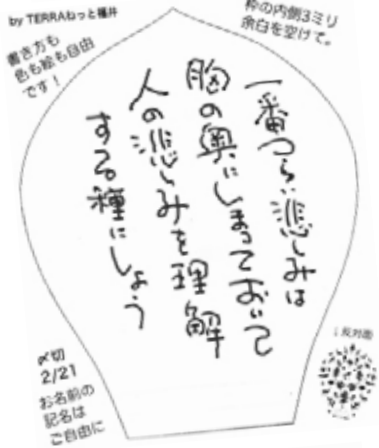 by TERRAねっと福井
書き方も
色も絵も自由
です！
枠の内側3ミリ
余白を空けて。
一番つらい悲しみは
胸の奥にしまっておいて
人の悲しみを理解
する種にしよう
↓反対面
〆切
2/21
お名前の
記名は
ご自由に